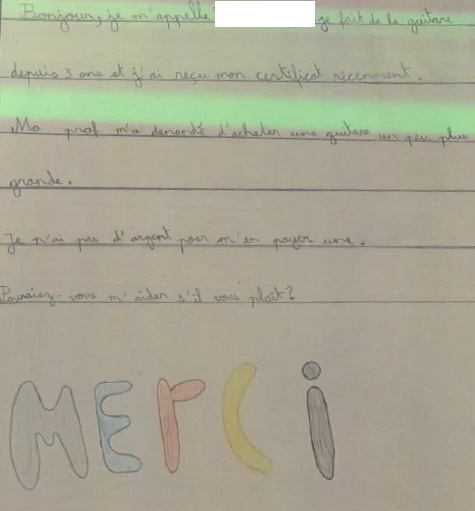 Bonjour, je m'appelle je fait de la guitare
depuis 3 ans et j'ai reçu mon certificat récemment.
Ma prof m'a demandé d'acheter une guitare un peu plus
grande.
Je n'ai pas d'argent pour m'en payer une.
Pouraiez-vous m'aider s'il vous plaît?
MErCi